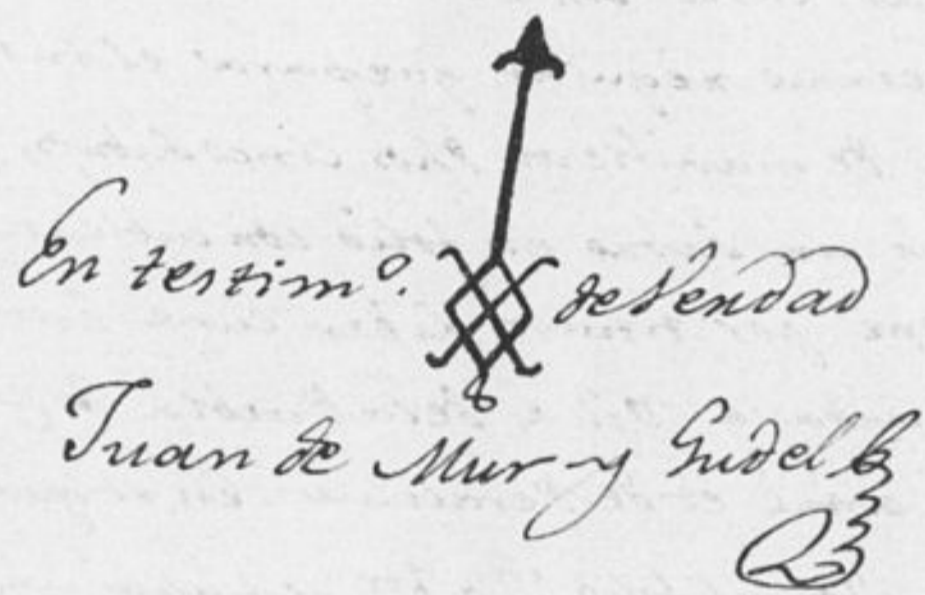 En testimº. de Verdad
Juan de Mur y Gudel